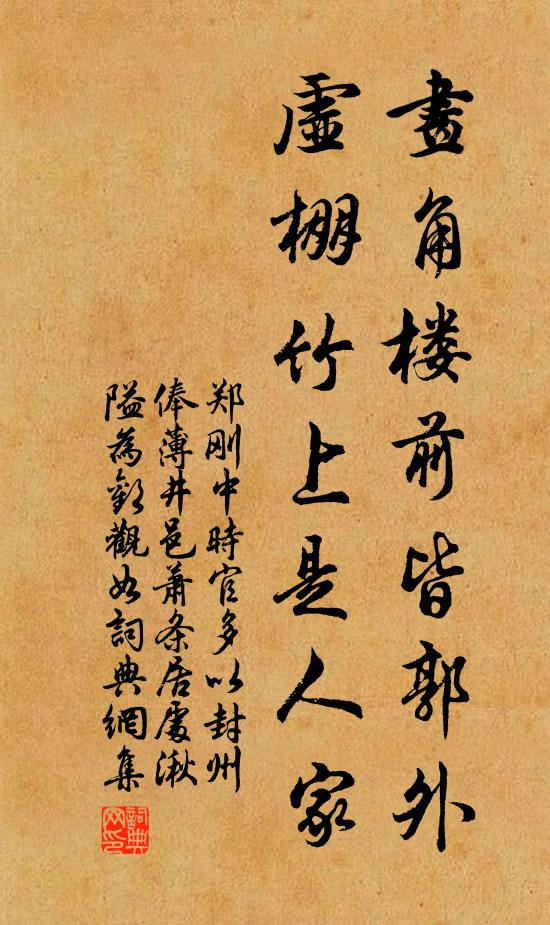 畫角楼前皆郭外
虛棚竹上是人家
郑刚中時官多以封州
俸薄井邑萧条居處湫
隘為歎觀如詞典網集
詞典网印